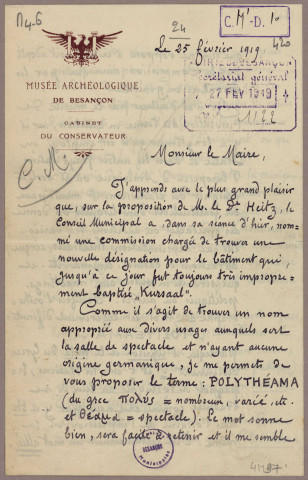 M4-6
24
C. M<sup>l</sup>-D. 10
Le 25 février 1919
420
MUSÉE ARCHÉOLOGIQUE
DE BESANÇON
CABINET
DU CONSERVATEUR
VILLE DE BESANÇON
Secrétariat général
27 FEV 1919
N° 1122
C. M.
Monsieur le Maire,
J'apprends avec le plus grand plaisir
que, sur la proposition de M. le Dr. Heitz, le
Conseil Municipal a, dans sa séance d'hier, nom-
mé une commission chargé de trouver une
nouvelle désignation pour le bâtiment qui,
jusqu'à ce jour fut toujours très impropre-
ment baptisé „Kursaal".
Comme il s'agit de trouver un nom
approprié aux divers usages auxquels sert
la salle de spectacle et n'ayant aucune
origine germanique, je me permets de
vous proposer le terme : POLYTHEAMA
(du grec πολύς = nombreux, varié, etc.
et θέαμα = spectacle). Ce mot sonne
bien, sera facile à retenir et il me semble
BESANÇON